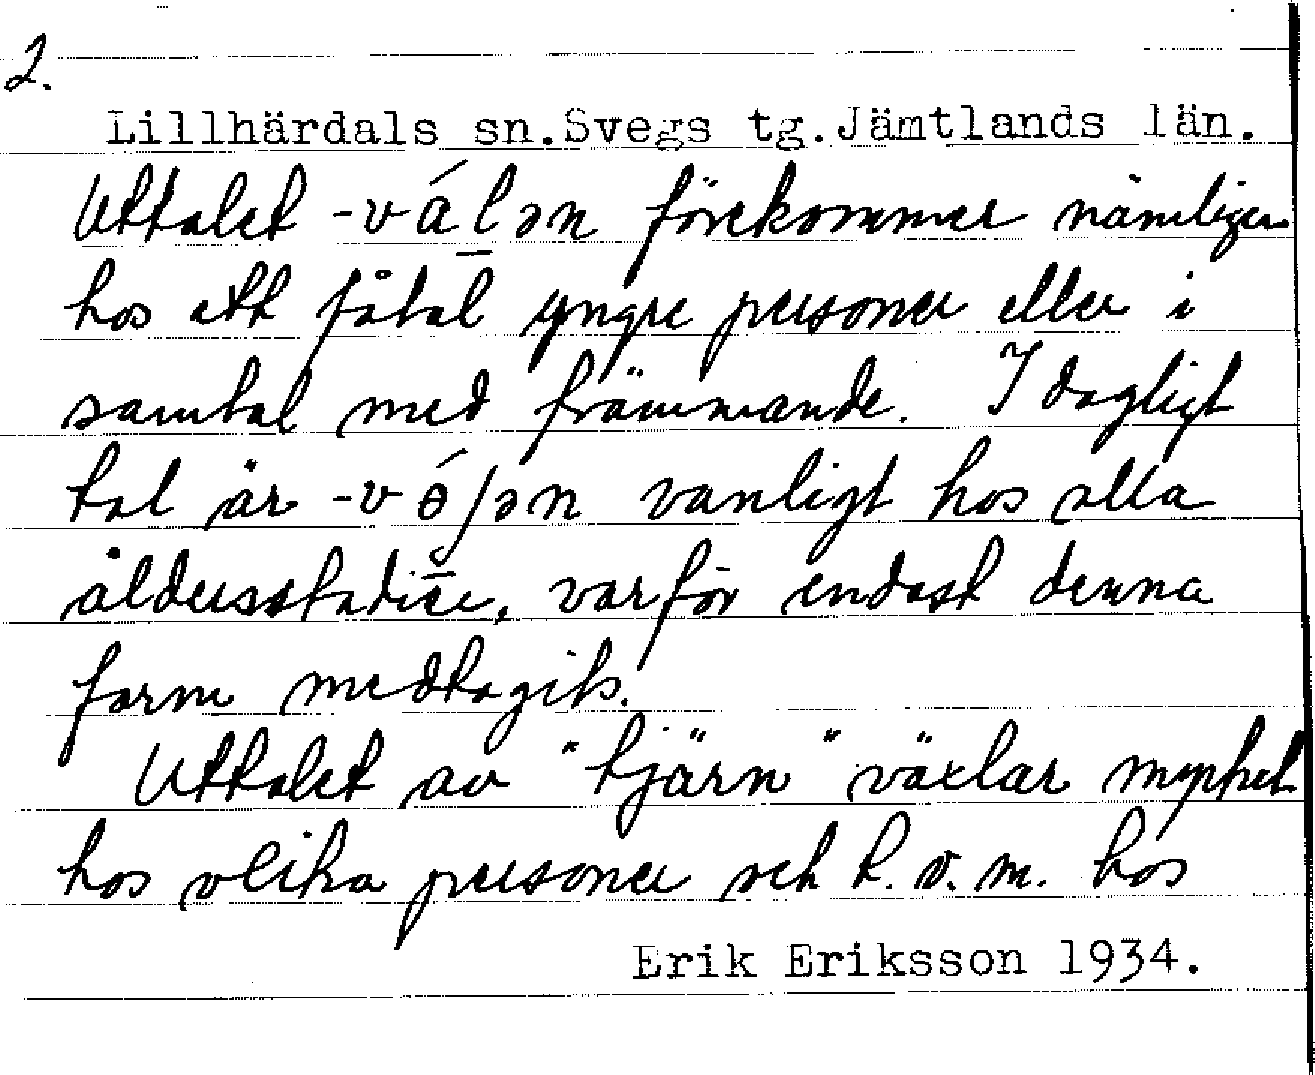 2.
Lillhärdals sn. Svegs tg. Jämtlands län.
Uttalet -válən förekommer nämligen
hos ett fåtal yngre personer eller i
samtal med främmande. I dagligt
tal är -vɵ́ʃən vanligt hos alla
åldersstadier, varför endast denna
form medtagits.
Uttalet av "tjärn" växlar mycket
hos olika personer och t.o.m. hos
Erik Eriksson 1934.